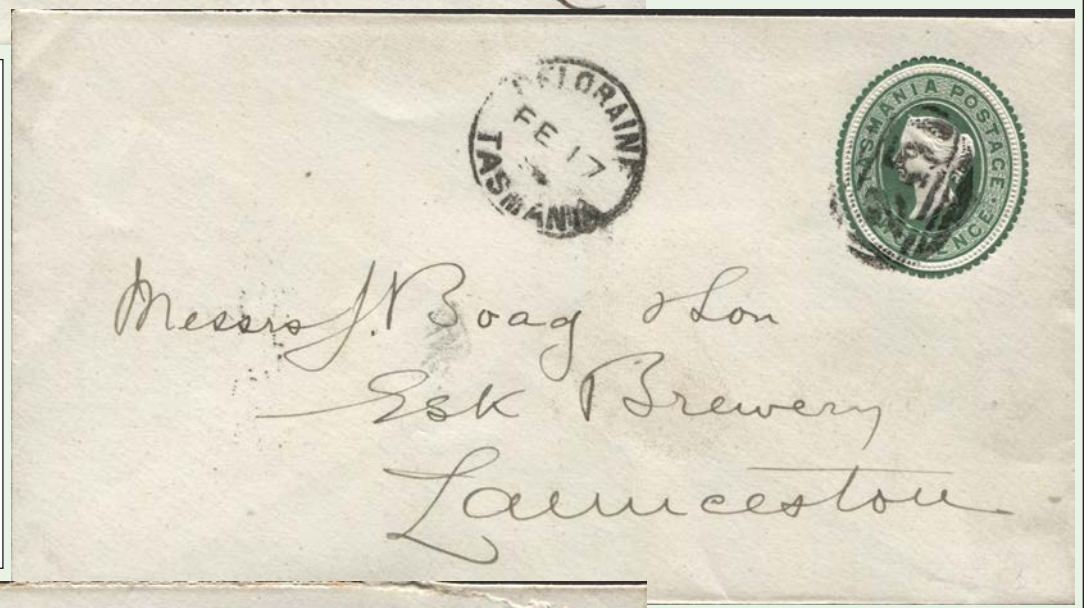 DELORAINE
FE 17
TASMANIA
TASMANIA POSTAGE
PENCE
Messrs J. Boag & Son
Esk Brewery
Launceston